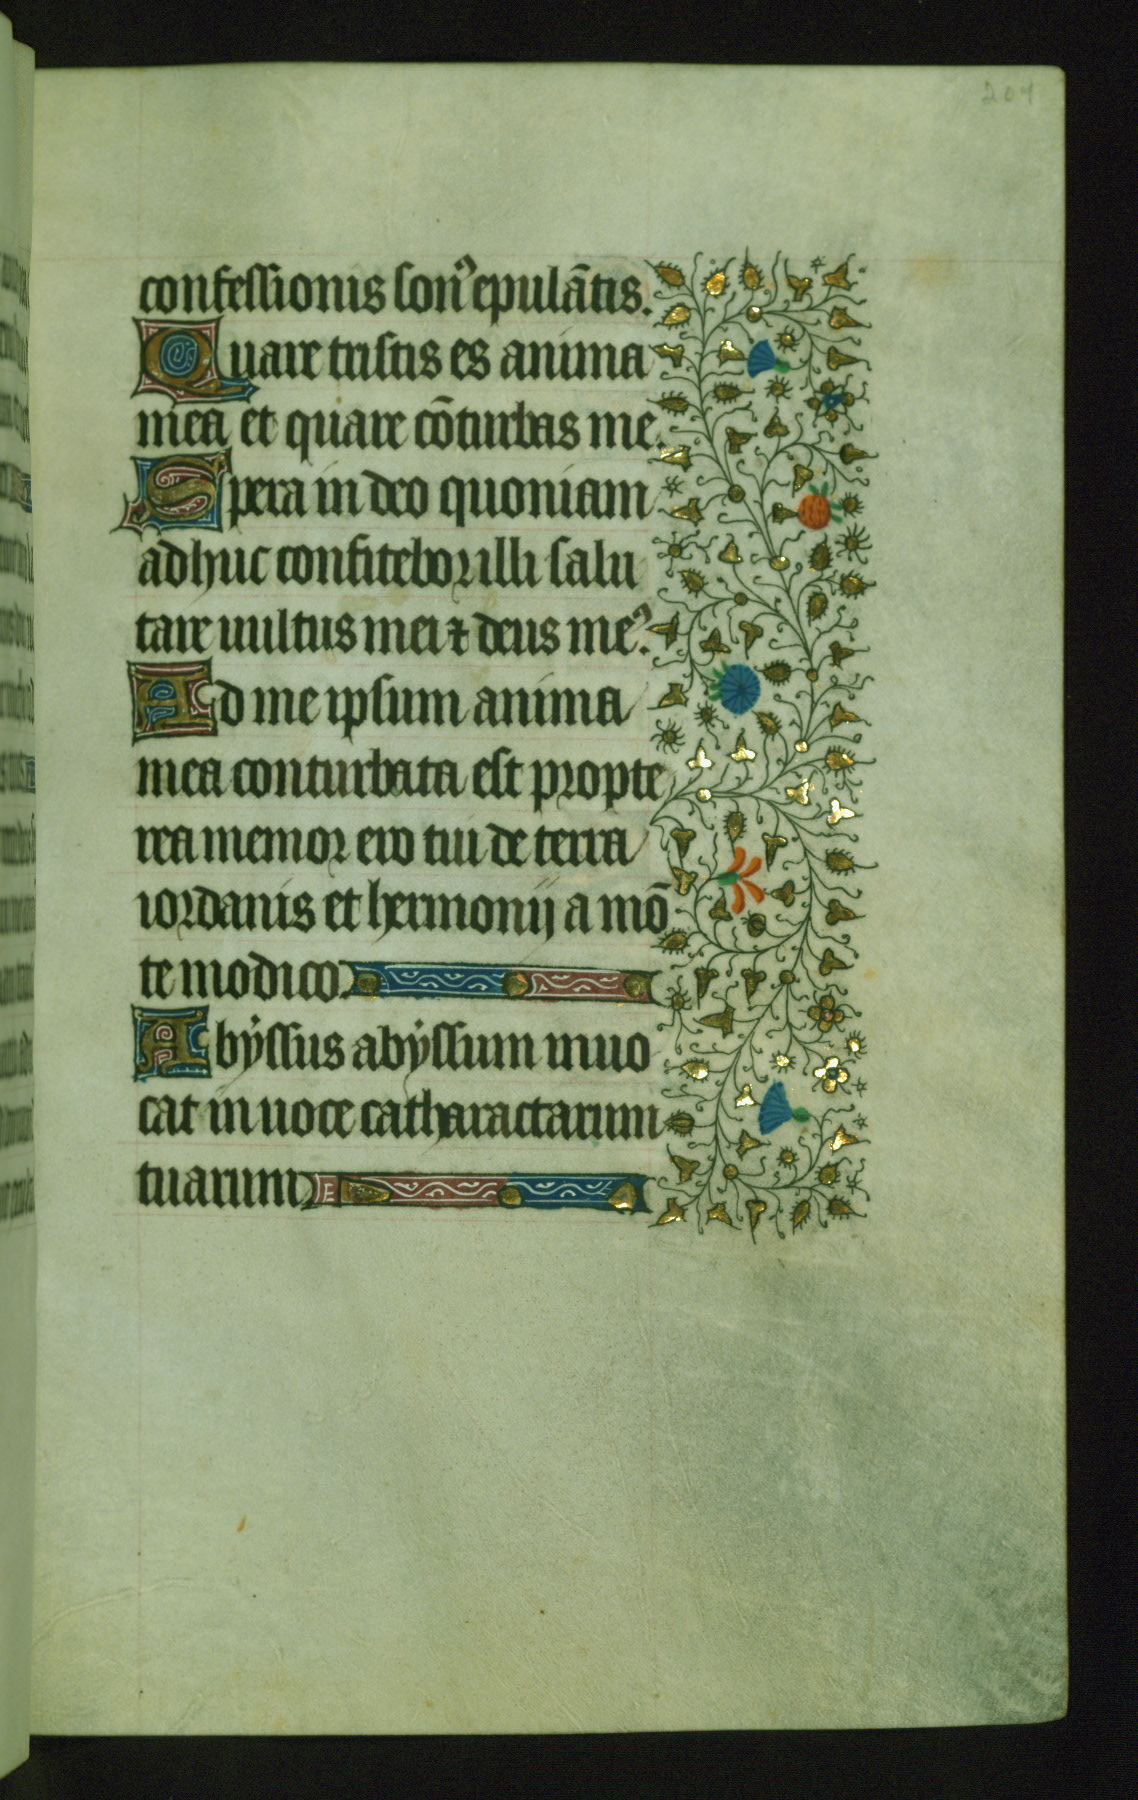 201
confessionis son᷒ epulātis.
Quare tristis es anima
mea et quare cōturbas me.
Spera in deo quoniam
adhuc confitebor illi salu
tare uultus mei ⁊ deus me᷒.
Ad me ipsum anima
mea conturbata est propte
rea memor ero tui de terra
iordanis et hermonij a mō
te modico.
Abẏssus abẏssum inuo
cat in uoce catharactarum
tuarum